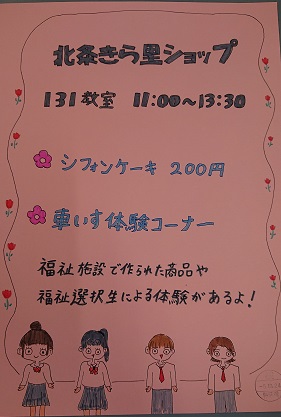 北条きら里ショップ
131教室 11:00～13:30
シフォンケーキ 200円
車いす体験コーナー
福祉施設で作られた商品や
福祉選択生による体験があるよ!